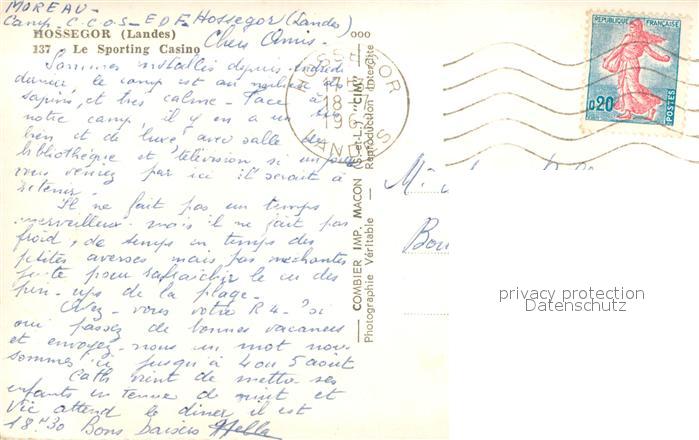 MOREAU -
Camp. C.C.O.S - EDF. Hossegor (Landes)
HOSSEGOR (Landes)
137 - Le Sporting Casino
Chers Amis.
Sommes installés depuis
dernier le camp est au milieu des
sapins, et très calme. Face à
notre camp, il y en a un
bien et de luxe avec salle de
bibliothèque et télévision si un jour
vous venez par ici il serait à
retenir.
Il ne fait pas un temps
merveilleux mais il ne fait pas
froid, de temps en temps des
petites averses mais pas méchantes
juste pour rafraichir le cu des
pin-ups de la plage.
Avez-vous votre R4 - si
oui passez de bonnes vacances
et envoyez-nous un mot nous
sommes ici jusqu'à 4 ou 5 août
Cath vient de mettre ses
enfants en tenue de nuit et
Vic attend le diner il est
18H30 Bons baisers
COMBIER IMP. MACON (S.-et-L.) "CIM"
Photographie Véritable - Reproduction Interdite
HOSSEGOR
LANDES
18
REPUBLIQUE FRANÇAISE
0,20
POSTES
M.
privacy protection
Datenschutz